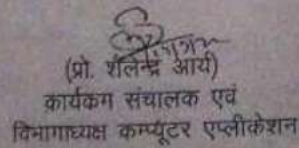 (प्रो. शैलेन्द्र आर्य)
कार्यकम संचालक एवं
विभागाध्यक्ष कम्प्यूटर एप्लीकेशन